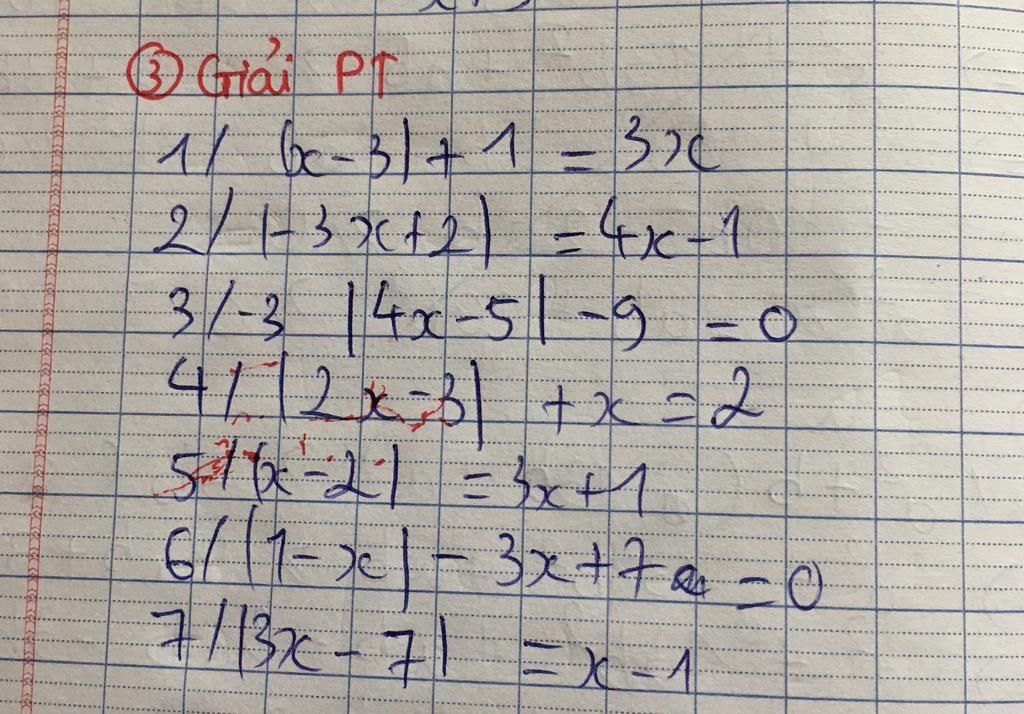 ③ Giải PT
1/ |x-3|+1 = 3x
2/ |-3x+2| = 4x-1
3/ -3 |4x-5| -9 = 0
4/ |2x-3| +x = 2
5/ |x-2| = 3x+1
6/ |1-x| - 3x+7 = 0
7/ |3x-7| = x-1